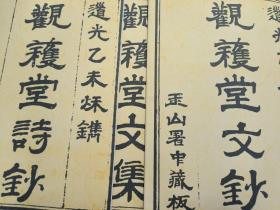 道光
觀穫堂文鈔
玉山署中藏板
觀穫堂文集
道光乙未秌鐫
觀穫堂詩鈔